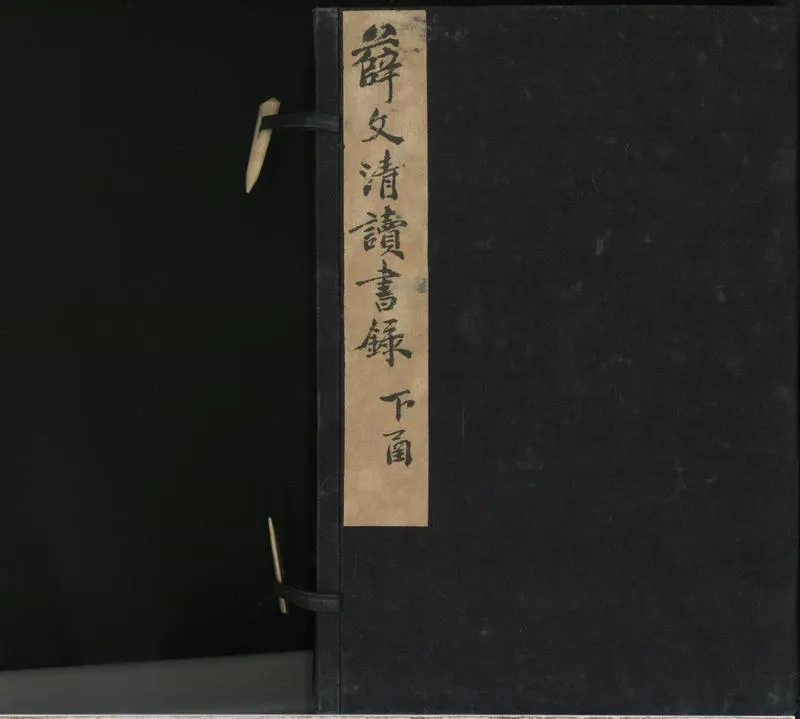 薛文清讀書録
下函